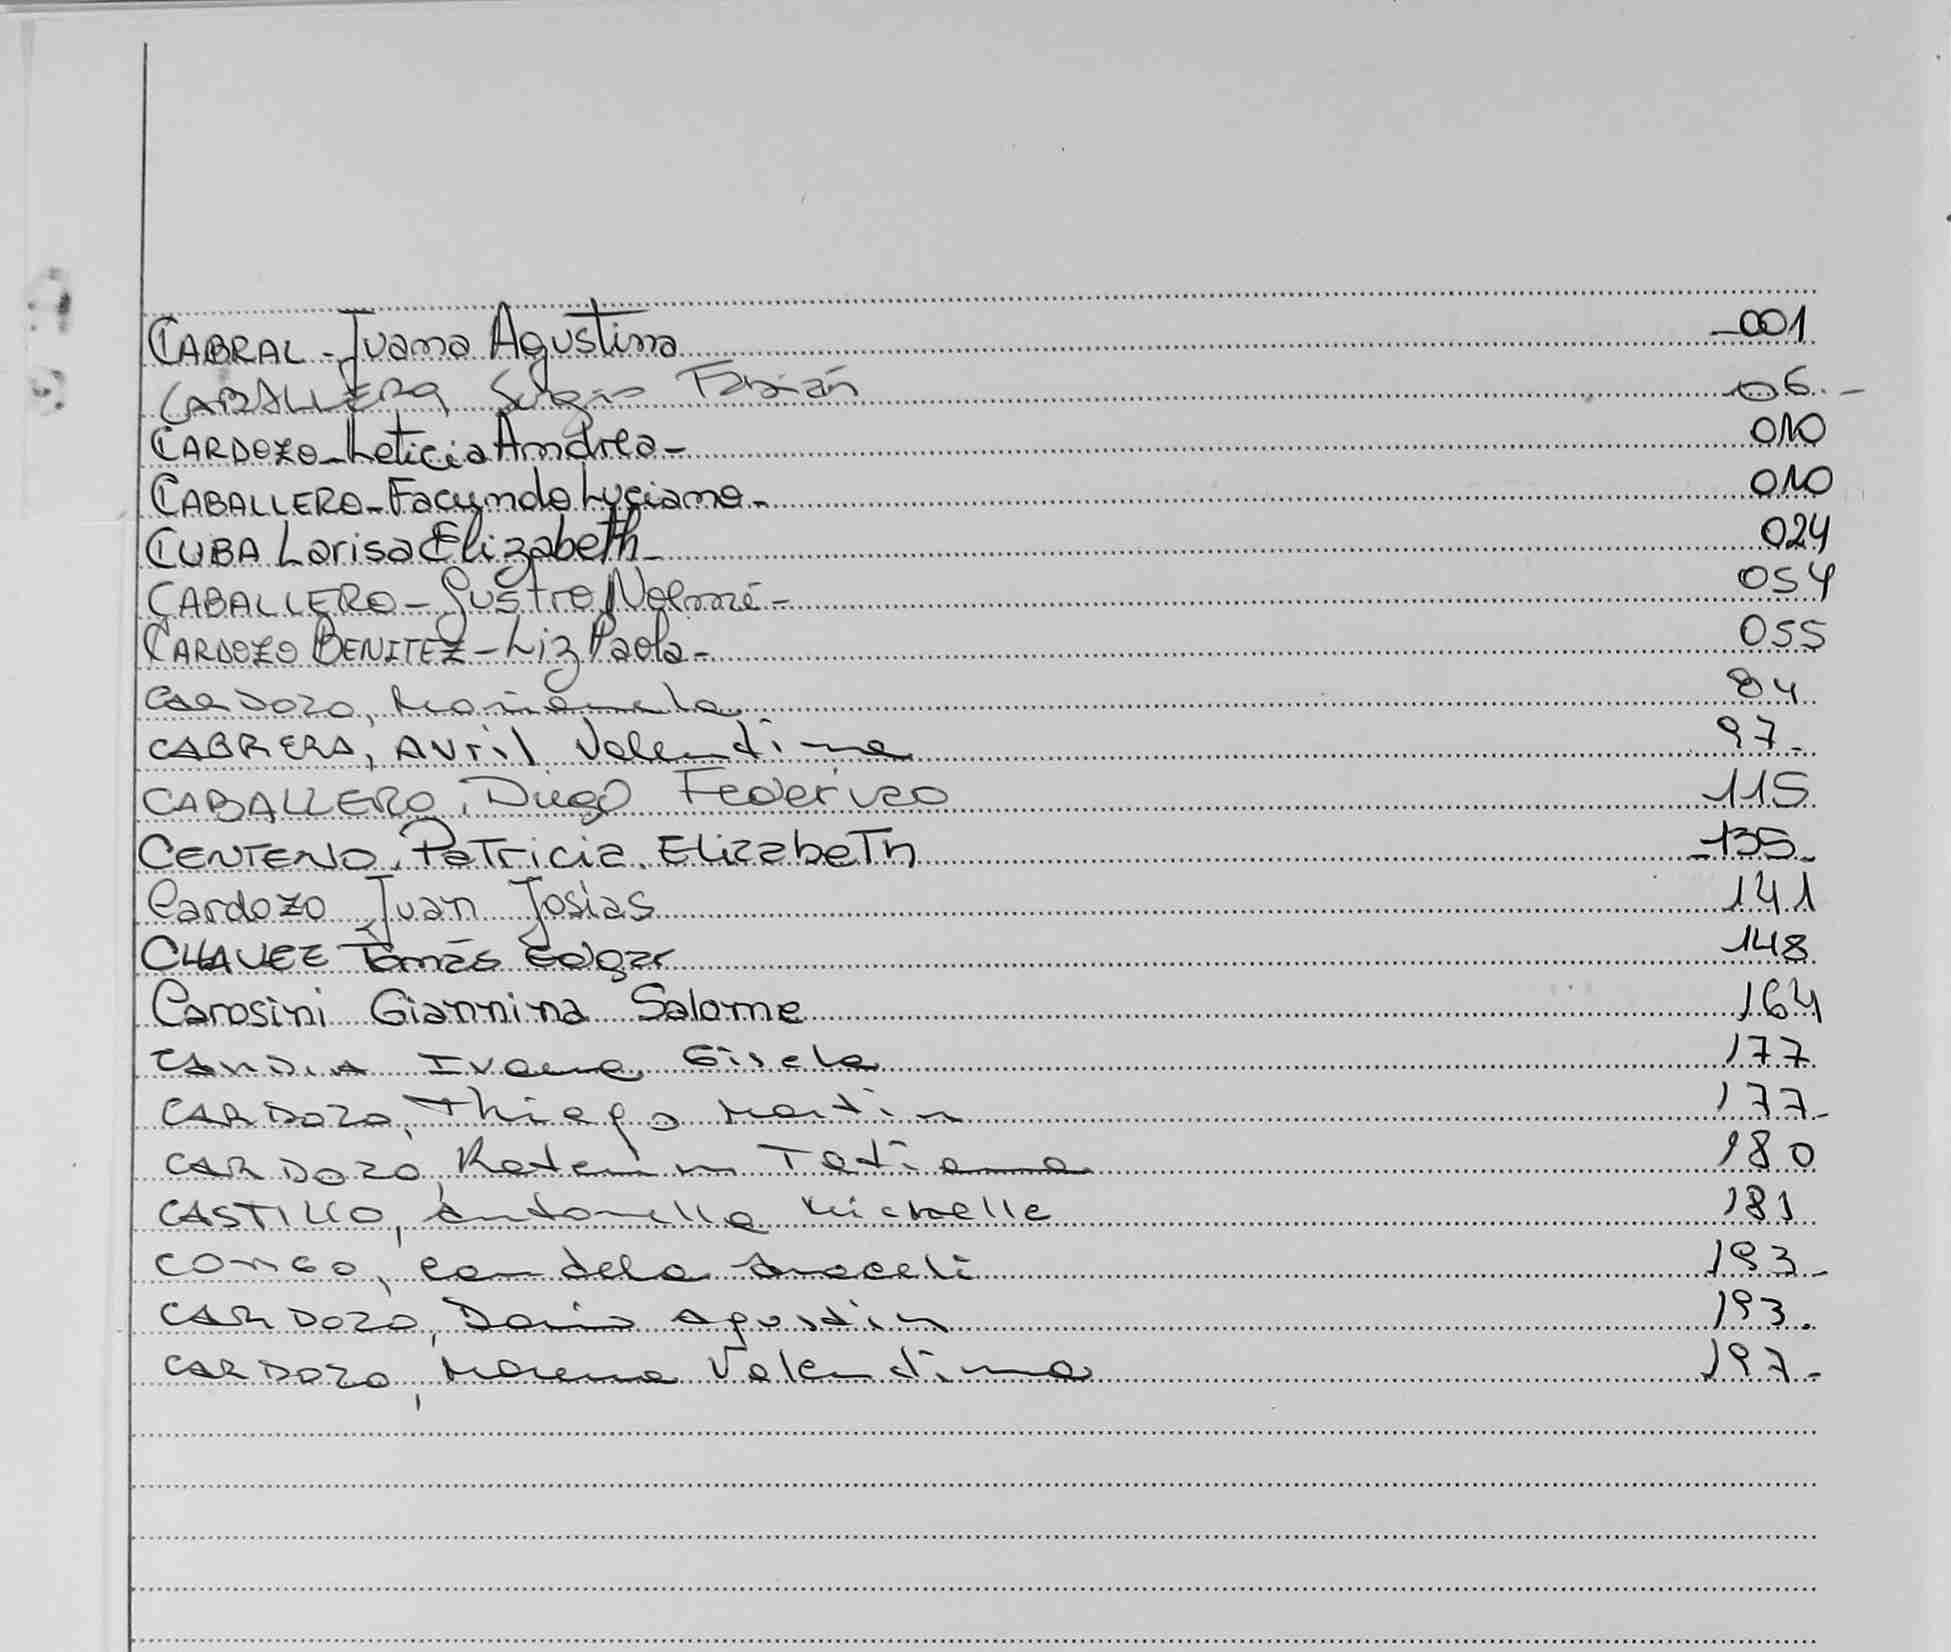 CABRAL - Juana Agustina -001
CABALLERO, Sergio Fabián 06.-
CARDOZO - Leticia Andrea - 010
CABALLERO - Facundo Luciano - 010
CUBA Larisa Elizabeth - 024
CABALLERO - Noemí - 054
CARDOZO BENITEZ - Liz Paola - 055
CARDOZO, Marianela 84
CABRERA, Avril Valentina 97-
CABALLERO, Diego Federico 115
CENTENO, Patricia Elizabeth -135-
Cardozo Juan Josias 141
CHAVEZ Tomás Edgar 148
Carosini Giannina Salome 164
CANDIA Ivana Gisela 177
CARDOZO, Thiago Martin 177-
CARDOZO, Tatiana 180
CASTILLO, Antonella Michelle 181
CONGO, Candela Araceli 193-
CARDOZO, Dario Agustin 193.
CARDOZO, Morena Valentina 197-